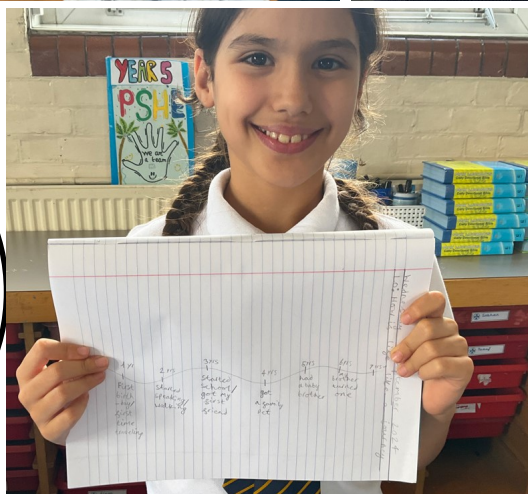 YEAR 5
PSHE
we are
a team
1 yr
First
birth
day/
first
time
crawling
2 yrs
Started
speaking/
walking
3 yrs
Started
school/
got my
first
friend
4 yrs
got
a family
pet
5 yrs
had
a baby
brother
6 yrs
brother
turned
one
7 yrs